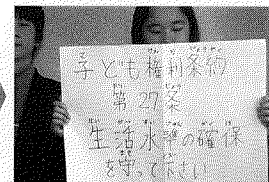 子ども権利条約
第27条
生活水準の確保
を守って下さい